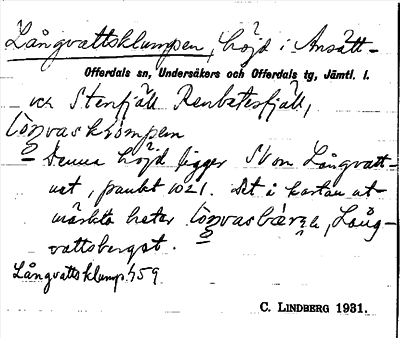 Långvattsklumpen, höjd i Ansätt-
Offerdals sn, Undersåkers och Offerdals tg, Jämtl. l.
och Stenfjäll Renbetesfjäll,
Denna höjd ligger SV om Långvatt-
net, punkt 1021. Det å kartan ut-
märkta heter Lång-
vattsberget.
Långvattsklump. 459
C. LINDBERG 1931.